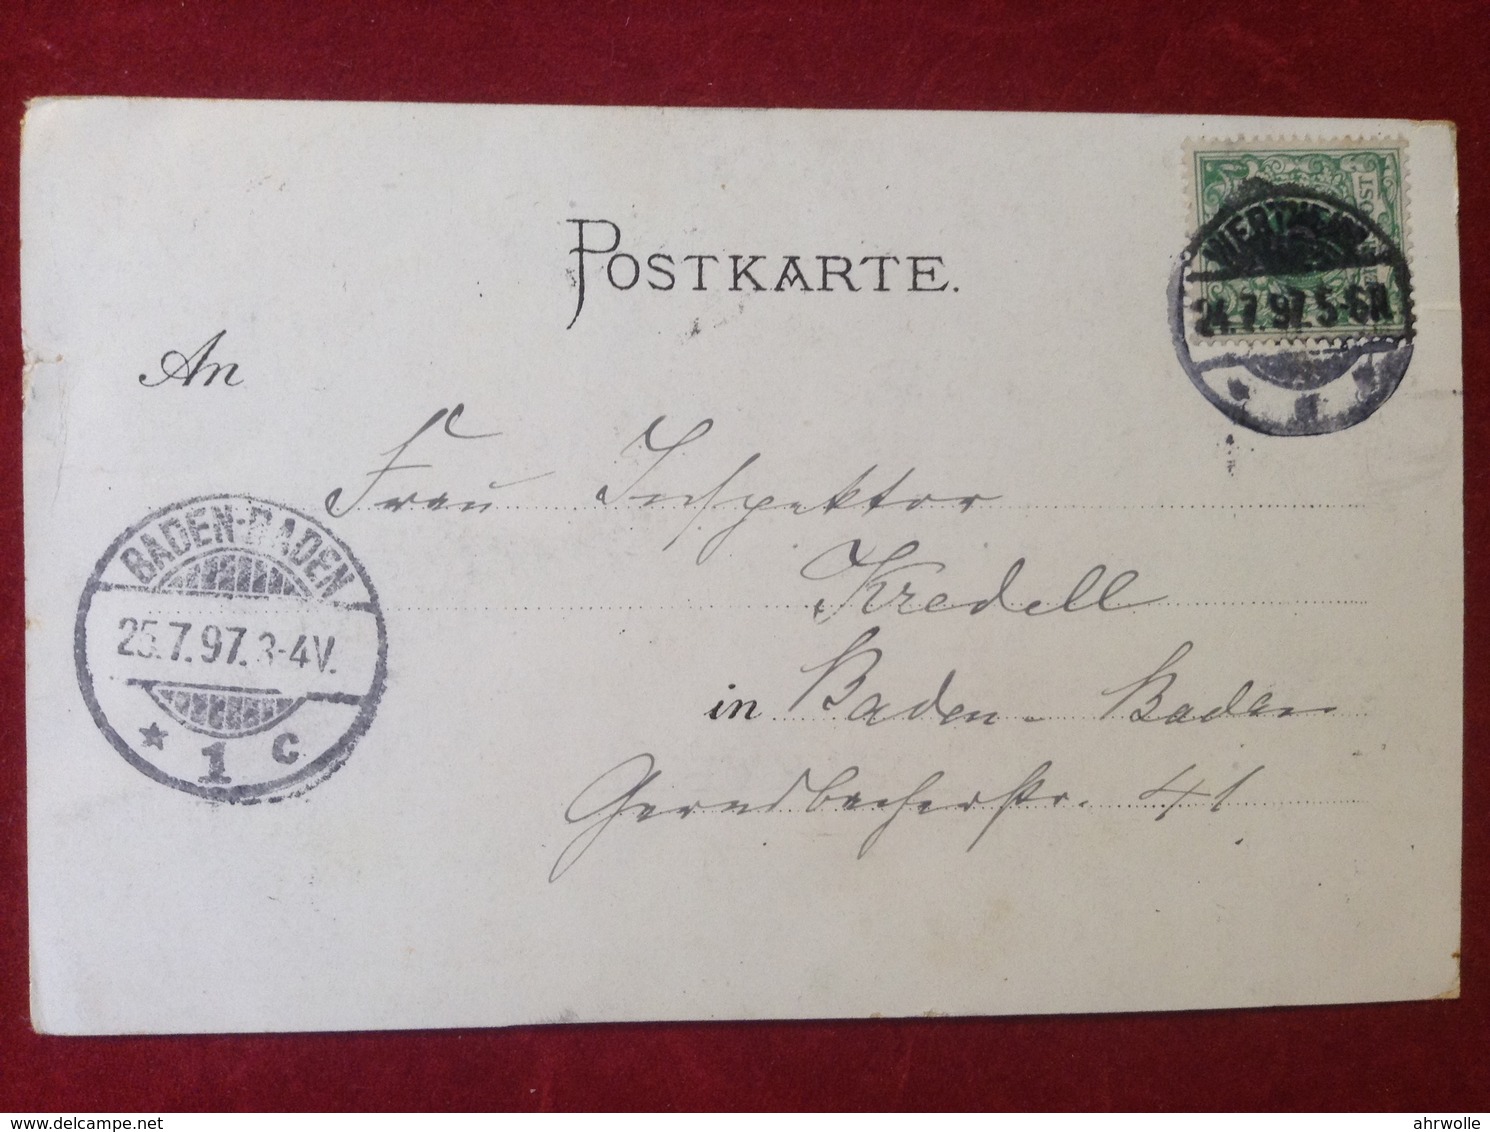 POSTKARTE.
WERTHEIM
24.7.97.5-6N.
An
Frau Inspektor
BADEN-BADEN
25.7.97.3-4V.
* 1 c
Kredell
in Baden-Baden
Gernsbacherstr. 41
www.delcampe.net
ahrwolle